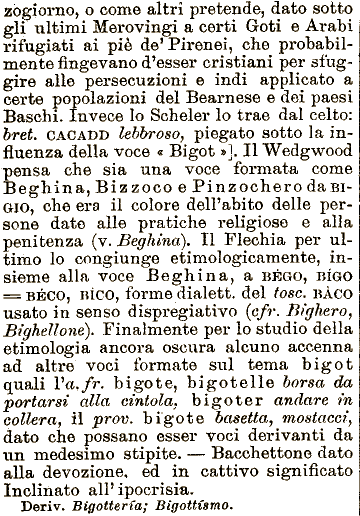 zogiorno, o come altri pretende, dato sotto
gli ultimi Merovingi a certi Goti e Arabi
rifugiati ai piè de' Pirenei, che probabil-
mente fingevano d'esser cristiani per sfug-
gire alle persecuzioni e indi applicato a
certe popolazioni del Bearnese e dei paesi
Baschi. Invece lo Scheler lo trae dal celto:
bret. CACADD lebbroso, piegato sotto la in-
fluenza della voce « Bigot »]. Il Wedgwood
pensa che sia una voce formata come
Beghina, Bizzoco e Pinzochero da BI-
GIO, che era il colore dell'abito delle per-
sone date alle pratiche religiose e alla
penitenza (v. Beghina). Il Flechia per ul-
timo lo congiunge etimologicamente, in-
sieme alla voce Beghina, a BÉGO, BÍGO
= BÉCO, BÍCO, forme dialett. del tosc. BÀCO
usato in senso dispregiativo (cfr. Bighero,
Bighellone). Finalmente per lo studio della
etimologia ancora oscura alcuno accenna
ad altre voci formate sul tema bigot
quali l'a.fr. bigote, bigotelle borsa da
portarsi alla cintola, bigoter andare in
collera, il prov. bigote basetta, mostacci,
dato che possano esser voci derivanti da
un medesimo stipite. — Bacchettone dato
alla devozione, ed in cattivo significato
Inclinato all' ipocrisia.
Deriv. Bigottería; Bigottísmo.